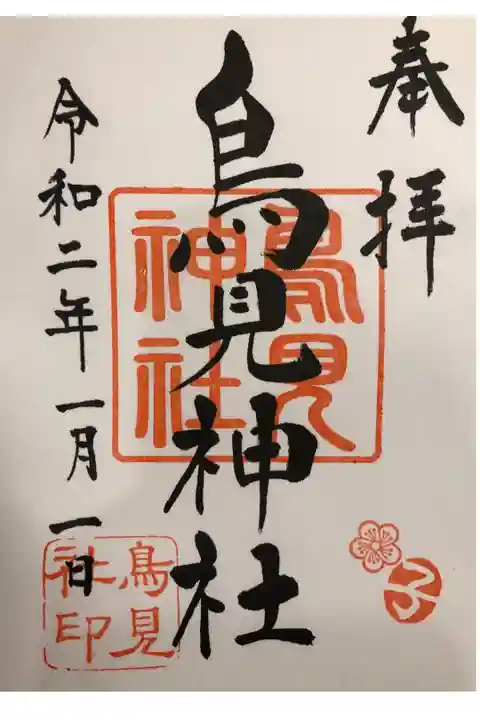 奉拝
鳥見神社
鳥見神社
令和二年一月一日
鳥見社印
子